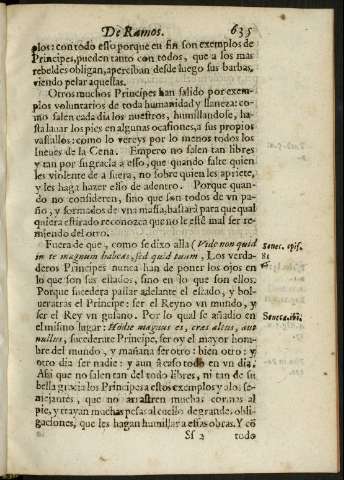 De Ramos. 635
plos: con todo esso porque en fin son exemplos de
Principes, pueden tanto con todos, que a los mas
rebeldes obligan, aperciban desde luego sus barbas,
viendo pelar aquestas.
Otros muchos Principes han salido por exem-
plos voluntarios de toda humanidad y llaneza: co-
mo salen cada dia los nuestros, humillandose, ha-
sta lauar los pies en algunas ocasiones, a sus propios
vassallos: como lo vereys por lo menos todos los
Iueues de la Cena. Empero no salen tan libres
y tan por su gracia a esso, que quando falte quien
les violente de a fuera, no sobre quien les apriete,
y les haga hazer esso de adentro. Porque quan-
do no consideren, sino que son todos de vn pa-
ño, y formados de vna massa, bastarà para que qual
quiera estirado reconozca que no le está mal ser re-
miendo del otro.
Fuera de que, como se dixo alla (Vide non quid
in te magnum habeas, sed quid tuum, Los verda-
deros Principes nunca han de poner los ojos en
lo que son sus estados, sino en lo que son ellos.
Porque sucederà passar adelante el estado, y bol-
ueratras el Principe: ser el Reyno vn mundo, y
ser el Rey vn gusano. Por lo qual se añadio en
el mismo lugar: Hodie magnus es, cras alius, aut
nullus, sucederate Principe, ser oy el mayor hom-
bre del mundo, y mañana ser otro: bien otro: y
otro dia ser nadie: y aun acaso todo en vn dia.
Assi que no salen tan del todo libres, ni tan de su
bella gracia los Principes a estos exemplos y a los se-
mejantes, que no arrastren muchas coronas al
pie, y trayan muchas pesas al cuello de grandes obli-
gaciones, que les hagan humillar a essas obras. Y cõ
Ss 2 todo
Senec. epis.
81
Seneca. ibi.